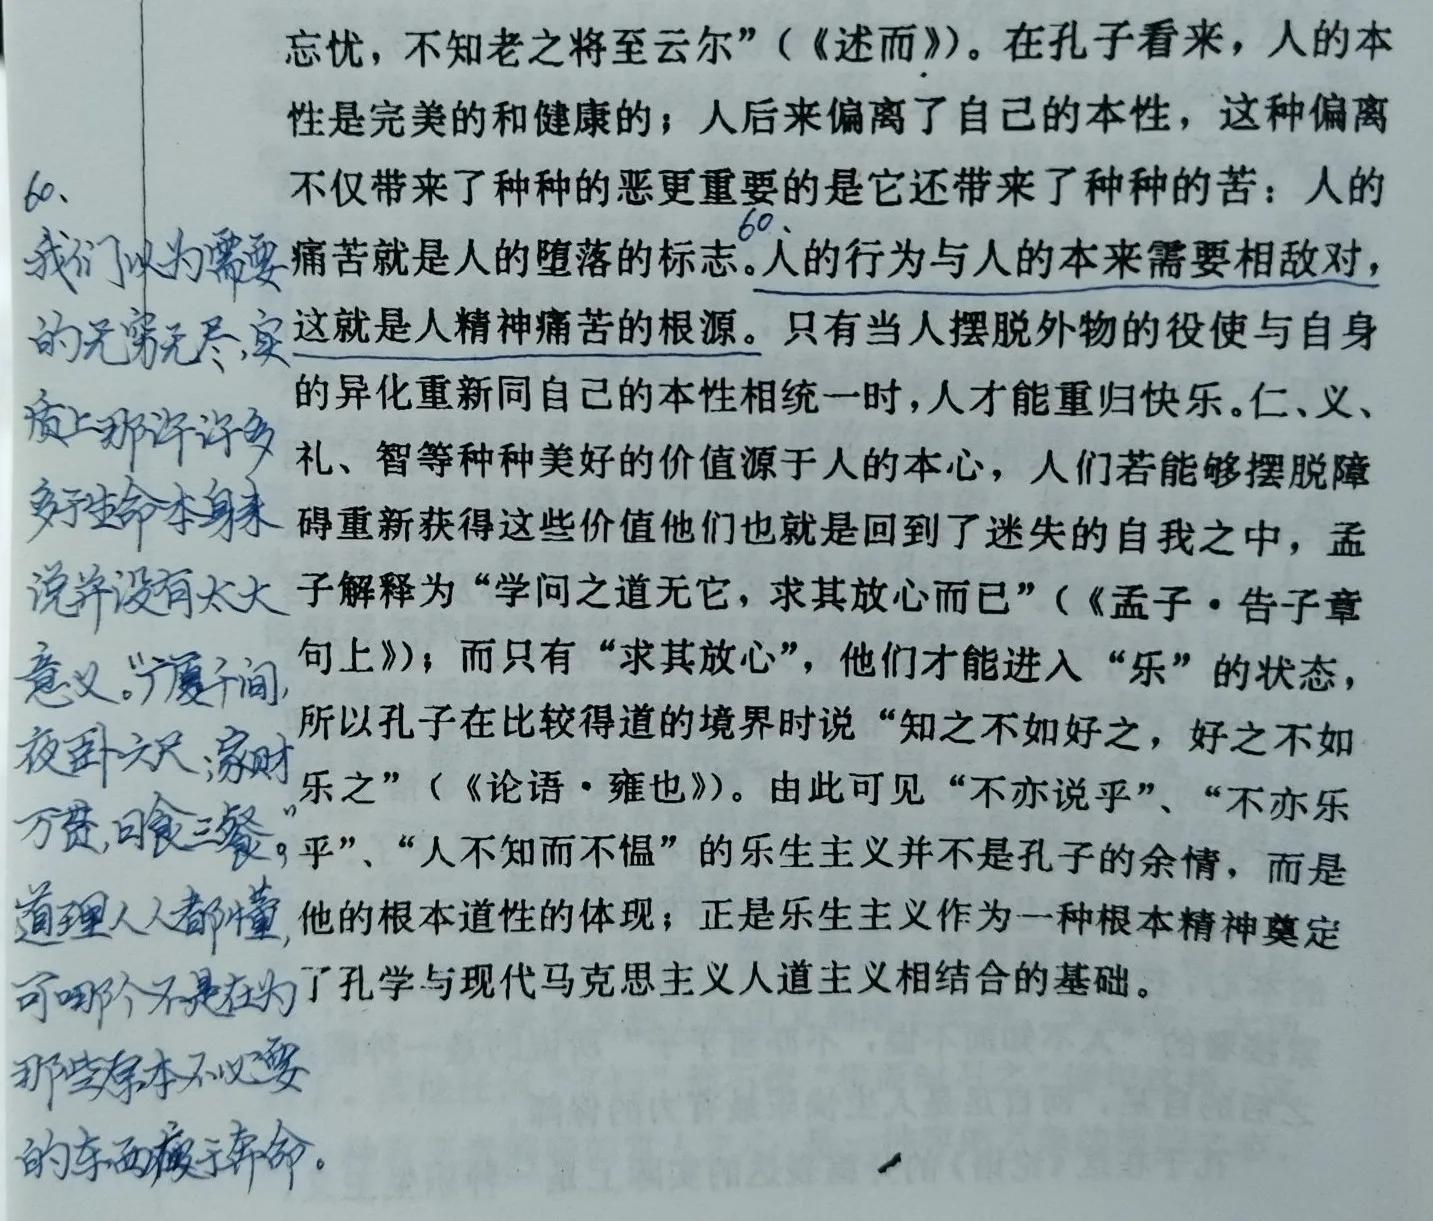 忘忧，不知老之将至云尔”（《述而》）。在孔子看来，人的本
性是完美的和健康的；人后来偏离了自己的本性，这种偏离
不仅带来了种种的恶更重要的是它还带来了种种的苦：人的
60、
痛苦就是人的堕落的标志。人的行为与人的本来需要相敌对，
这就是人精神痛苦的根源。只有当人摆脱外物的役使与自身
的异化重新同自己的本性相统一时，人才能重归快乐。仁、义、
礼、智等种种美好的价值源于人的本心，人们若能够摆脱障
碍重新获得这些价值他们也就是回到了迷失的自我之中，孟
子解释为“学问之道无它，求其放心而已”（《孟子·告子章
句上》）；而只有“求其放心”，他们才能进入“乐”的状态，
所以孔子在比较得道的境界时说“知之不如好之，好之不如
乐之”（《论语·雍也》）。由此可见“不亦说乎”、“不亦乐
乎”、“人不知而不愠”的乐生主义并不是孔子的余情，而是
他的根本道性的体现；正是乐生主义作为一种根本精神奠定
了孔学与现代马克思主义人道主义相结合的基础。
60、
我们以为需要
的无穷无尽，实
质上那许许多
多于生命本身来
说并没有太大
意义。“广厦千间，
夜卧六尺；家财
万贯，日食三餐。”
道理人人都懂，
可哪个不是在为
那些原本不必要
的东西疲于奔命。